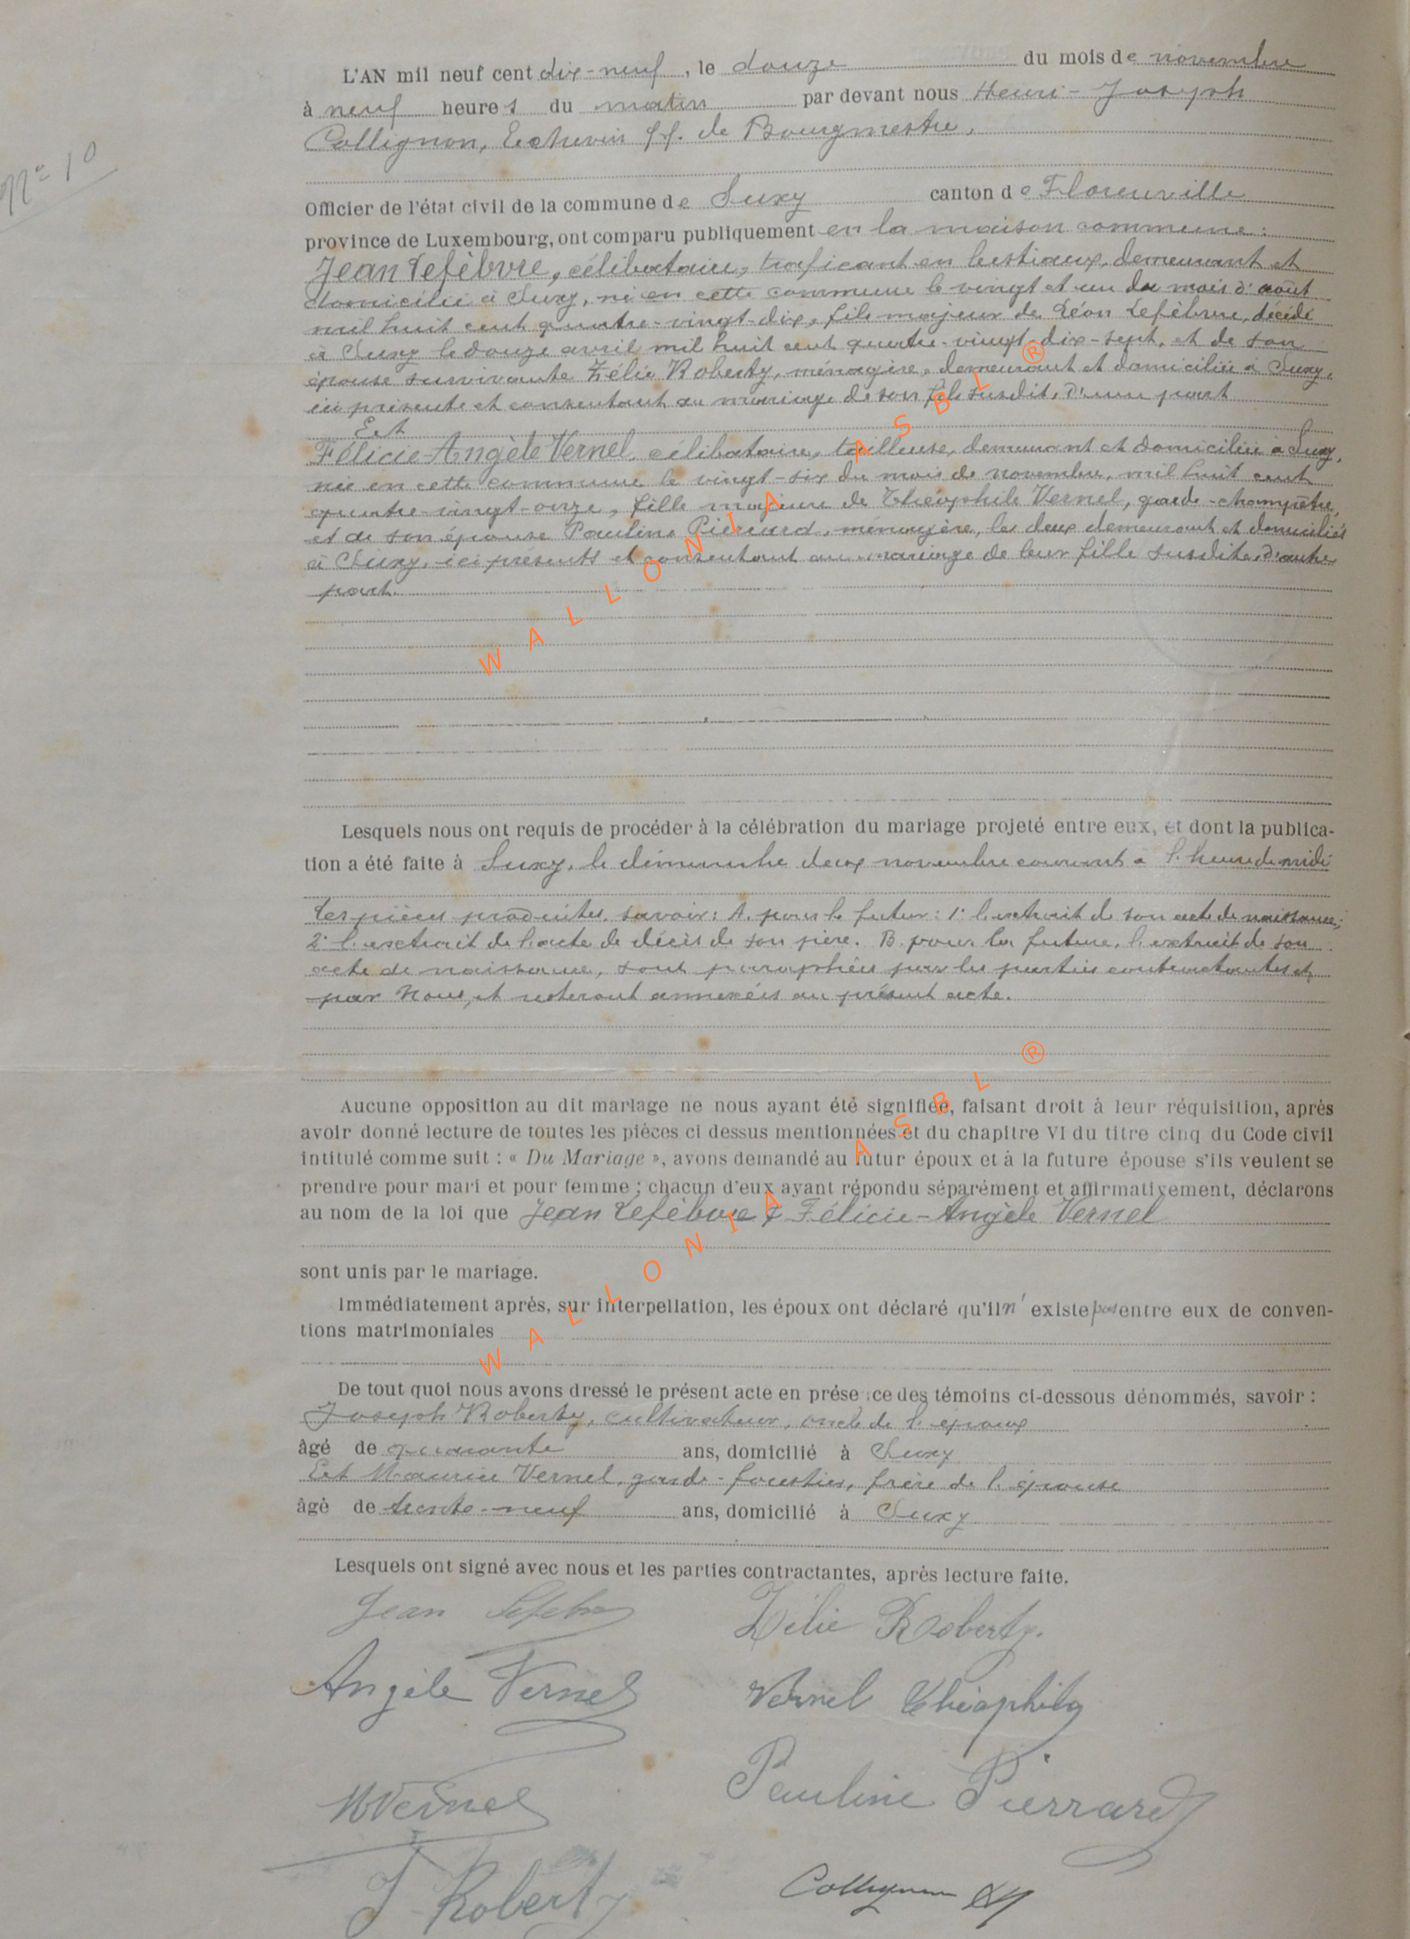 N° 10
L'AN mil neuf cent dix-neuf, le douze du mois de novembre
à neuf heures du matin par devant nous Henri-Joseph
Collignon, Echevin ff. de Bourgmestre,
Officier de l'état civil de la commune de Suxy canton de Florenville
province de Luxembourg, ont comparu publiquement en la maison commune:
Jean Lefèbvre, célibataire, traficant en bestiaux, demeurant et
domicilié à Suxy, né en cette commune le vingt et un du mois d'août
mil huit cent quatre-vingt-dix, fils majeur de Léon Lefèbvre, décédé
à Suxy le douze avril mil huit cent quatre-vingt-dix-sept, et de son
épouse survivante Zélie Roberty, ménagère, demeurant et domiciliée à Suxy,
ici présente et consentant au mariage de son fils susdit, d'une part
Et
Félicie-Angèle Vernel, célibataire, tailleuse, demeurant et domiciliée à Suxy,
née en cette commune le vingt-six du mois de novembre, mil huit cent
quatre-vingt-onze, fille majeure de Théophile Vernel, garde-champêtre,
et de son épouse Pauline Pierrard, ménagère, les deux demeurant et domiciliés
à Suxy, ici présents et consentant au mariage de leur fille susdite, d'autre
part.
Lesquels nous ont requis de procéder à la célébration du mariage projeté entre eux, et dont la publica-
tion a été faite à Suxy, le dimanche deux novembre courant à l'heure de midi
Les pièces produites, savoir: A. pour le futur: 1° l'extrait de son acte de naissance;
2° l'extrait de l'acte de décès de son père. B. pour la future, l'extrait de son
acte de naissance, sont paraphées par les parties contractantes et
par Nous, et resteront annexées au présent acte.
Aucune opposition au dit mariage ne nous ayant été signifiée, faisant droit à leur réquisition, après
avoir donné lecture de toutes les pièces ci dessus mentionnées et du chapitre VI du titre cinq du Code civil
intitulé comme suit : « Du Mariage », avons demandé au futur époux et à la future épouse s'ils veulent se
prendre pour mari et pour femme ; chacun d'eux ayant répondu séparément et affirmativement, déclarons
au nom de la loi que Jean Lefèbvre & Félicie-Angèle Vernel
sont unis par le mariage.
Immédiatement après, sur interpellation, les époux ont déclaré qu'il n'existe pas entre eux de conven-
tions matrimoniales
De tout quoi nous avons dressé le présent acte en présence des témoins ci-dessous dénommés, savoir :
Joseph Roberty, cultivateur, oncle de l'époux
âgé de quarante ans, domicilié à Suxy
Et Maurice Vernel, garde-forestier, frère de l'épouse
âgé de trente-neuf ans, domicilié à Suxy
Lesquels ont signé avec nous et les parties contractantes, après lecture faite.
Jean Lefebvre Zélie Roberty.
Angèle Vernel Vernel Théophile
Pauline Pierrard
M Vernel
J Roberty Collignon HJ
WALLONIA ASBL ®
WALLONIA ASBL ®